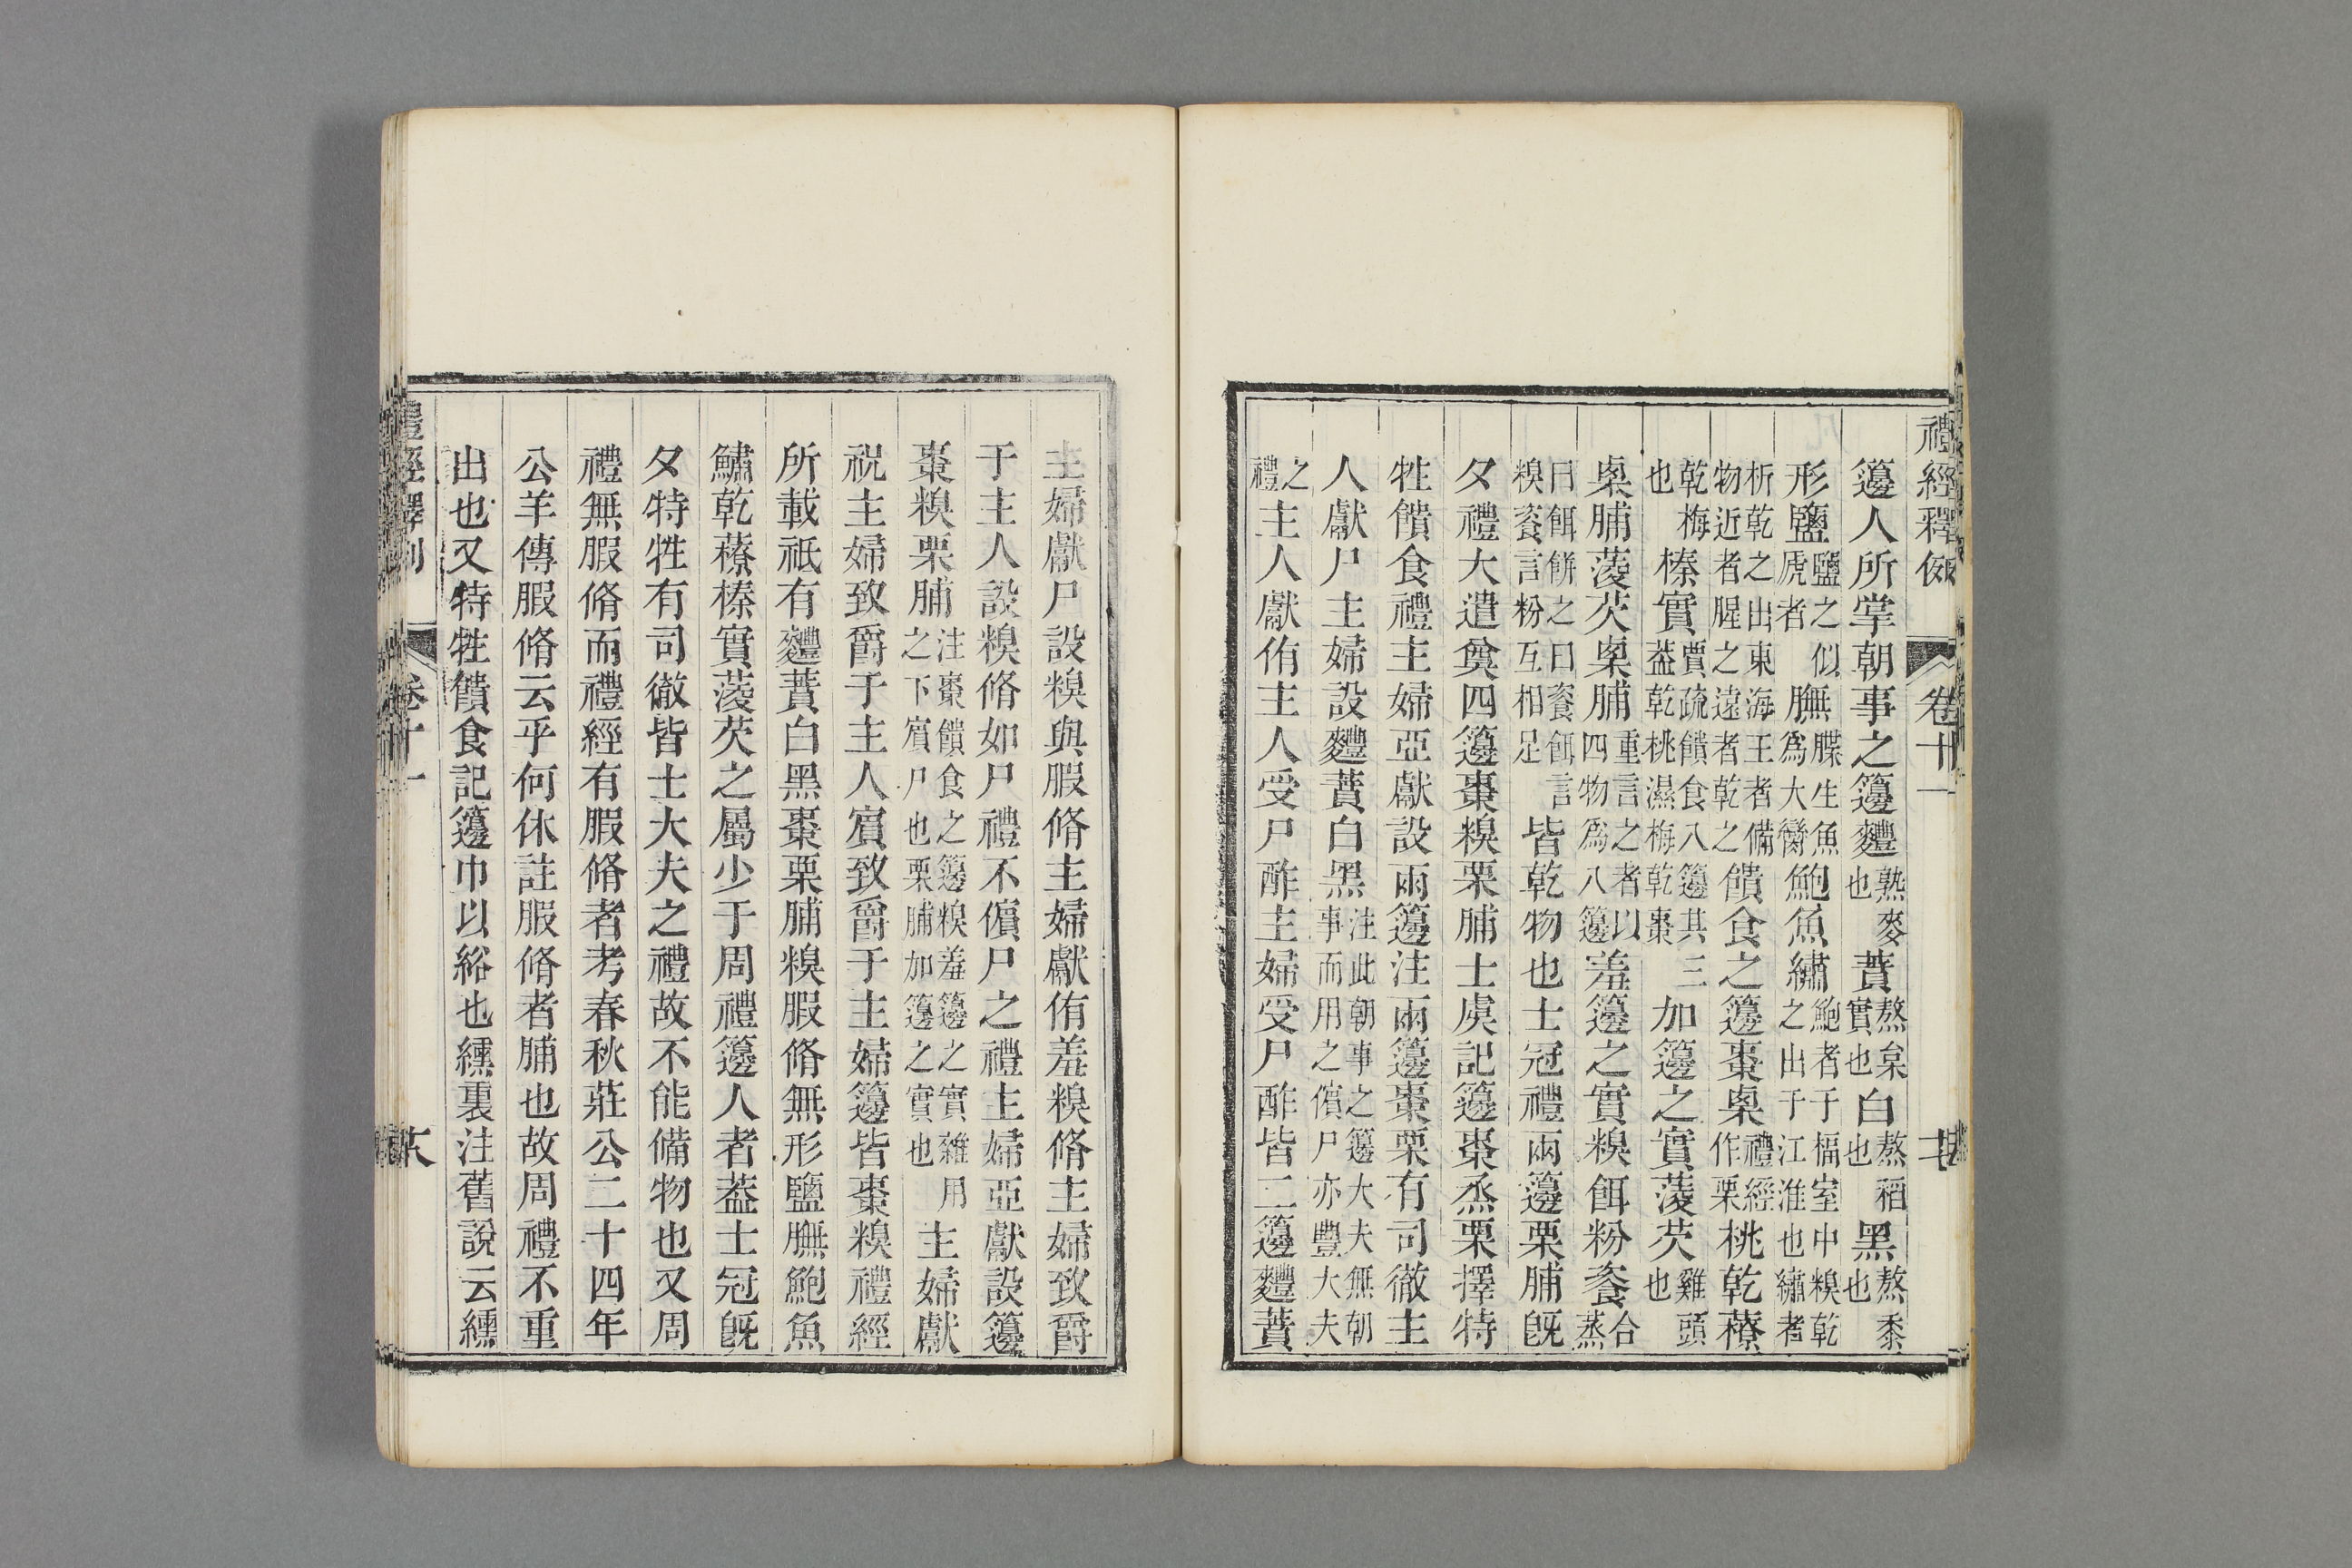 禮經釋例 卷十一
籩人所掌朝事之籩麷熟麥也蕡熬枲實也白熬稻也黑熬黍也
形鹽鹽之似虎者膴膴牒生魚爲大臠鮑魚鱐鮑者于楅室中糗乾之出于江淮也鱐者
析乾之出東海王者備物近者腥之遠者乾之饋食之籩棗㮚禮經作栗桃乾䕩
乾梅也榛實賈疏饋食八籩其三蓋乾桃濕梅乾棗加籩之實蔆芡雞頭也
㮚脯蔆芡㮚脯重言之者以四物爲八籩羞籩之實糗餌粉餈合蒸
曰餌餅之曰餈餌言糗餈言粉互相足皆乾物也士冠禮兩籩栗脯旣
夕禮大遣奠四籩棗糗栗脯士虞記籩棗烝栗擇特
牲饋食禮主婦亞獻設兩籩注兩籩棗栗有司徹主
人獻尸主婦設麷蕡白黑注此朝事之籩大夫無朝事而用之儐尸亦豐大夫
之禮主人獻侑主人受尸酢主婦受尸酢皆二籩麷蕡
主婦獻尸設糗與腶脩主婦獻侑羞糗脩主婦致爵
于主人設糗脩如尸禮不儐尸之禮主婦亞獻設籩
棗糗栗脯注棗饋食之籩糗羞籩之實雜用之下賔尸也栗脯加籩之實也主婦獻
祝主婦致爵于主人賔致爵于主婦籩皆棗糗禮經
所載祇有麷蕡白黑棗栗脯糗腶脩無形鹽膴鮑魚
鱐乾䕩榛實蔆芡之屬少于周禮籩人者蓋士冠旣
夕特牲有司徹皆士大夫之禮故不能備物也又周
禮無腶脩而禮經有腶脩者考春秋莊公二十四年
公羊傳腶脩云乎何休註腶脩者脯也故周禮不重
出也又特牲饋食記籩巾以綌也纁裏注舊說云纁
禮經釋例 卷十一